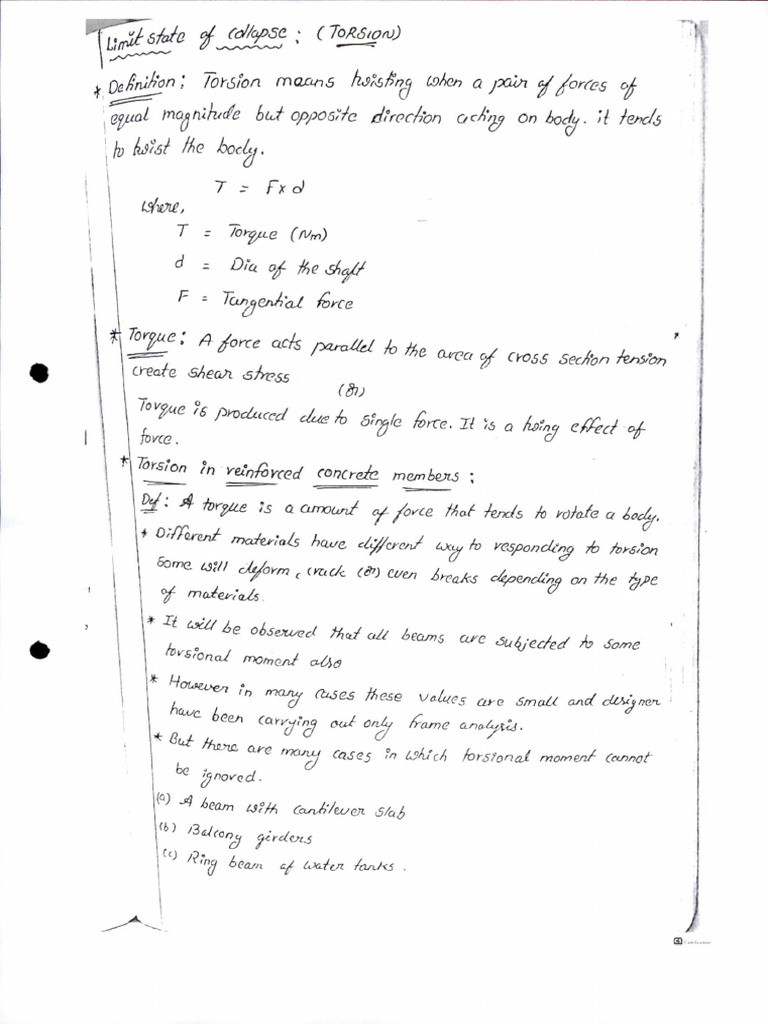 Limit state of collapse : (TORSION)
* Definition : Torsion means twisting when a pair of forces of
equal magnitude but opposite direction acting on body. it tends
to twist the body.
T = F x d
where,
T = Torque (Nm)
d = Dia of the shaft
F = Tangential force
* Torque : A force acts parallel to the area of cross section tension
create shear stress
(or)
Torque is produced due to single force. It is a hsing effect of
force.
* Torsion in reinforced concrete members :
Def : A torque is a amount of force that tends to rotate a body.
* Different materials have different way to responding to torsion
some will deform, crack (or) even breaks depending on the type
of materials.
* It will be observed that all beams are subjected to some
torsional moment also
* However in many cases these values are small and designer
have been carrying out only frame analysis.
* But there are many cases in which torsional moment cannot
be ignored.
(a) A beam with cantilever slab
(b) Balcony girders
(c) Ring beam of water tanks.